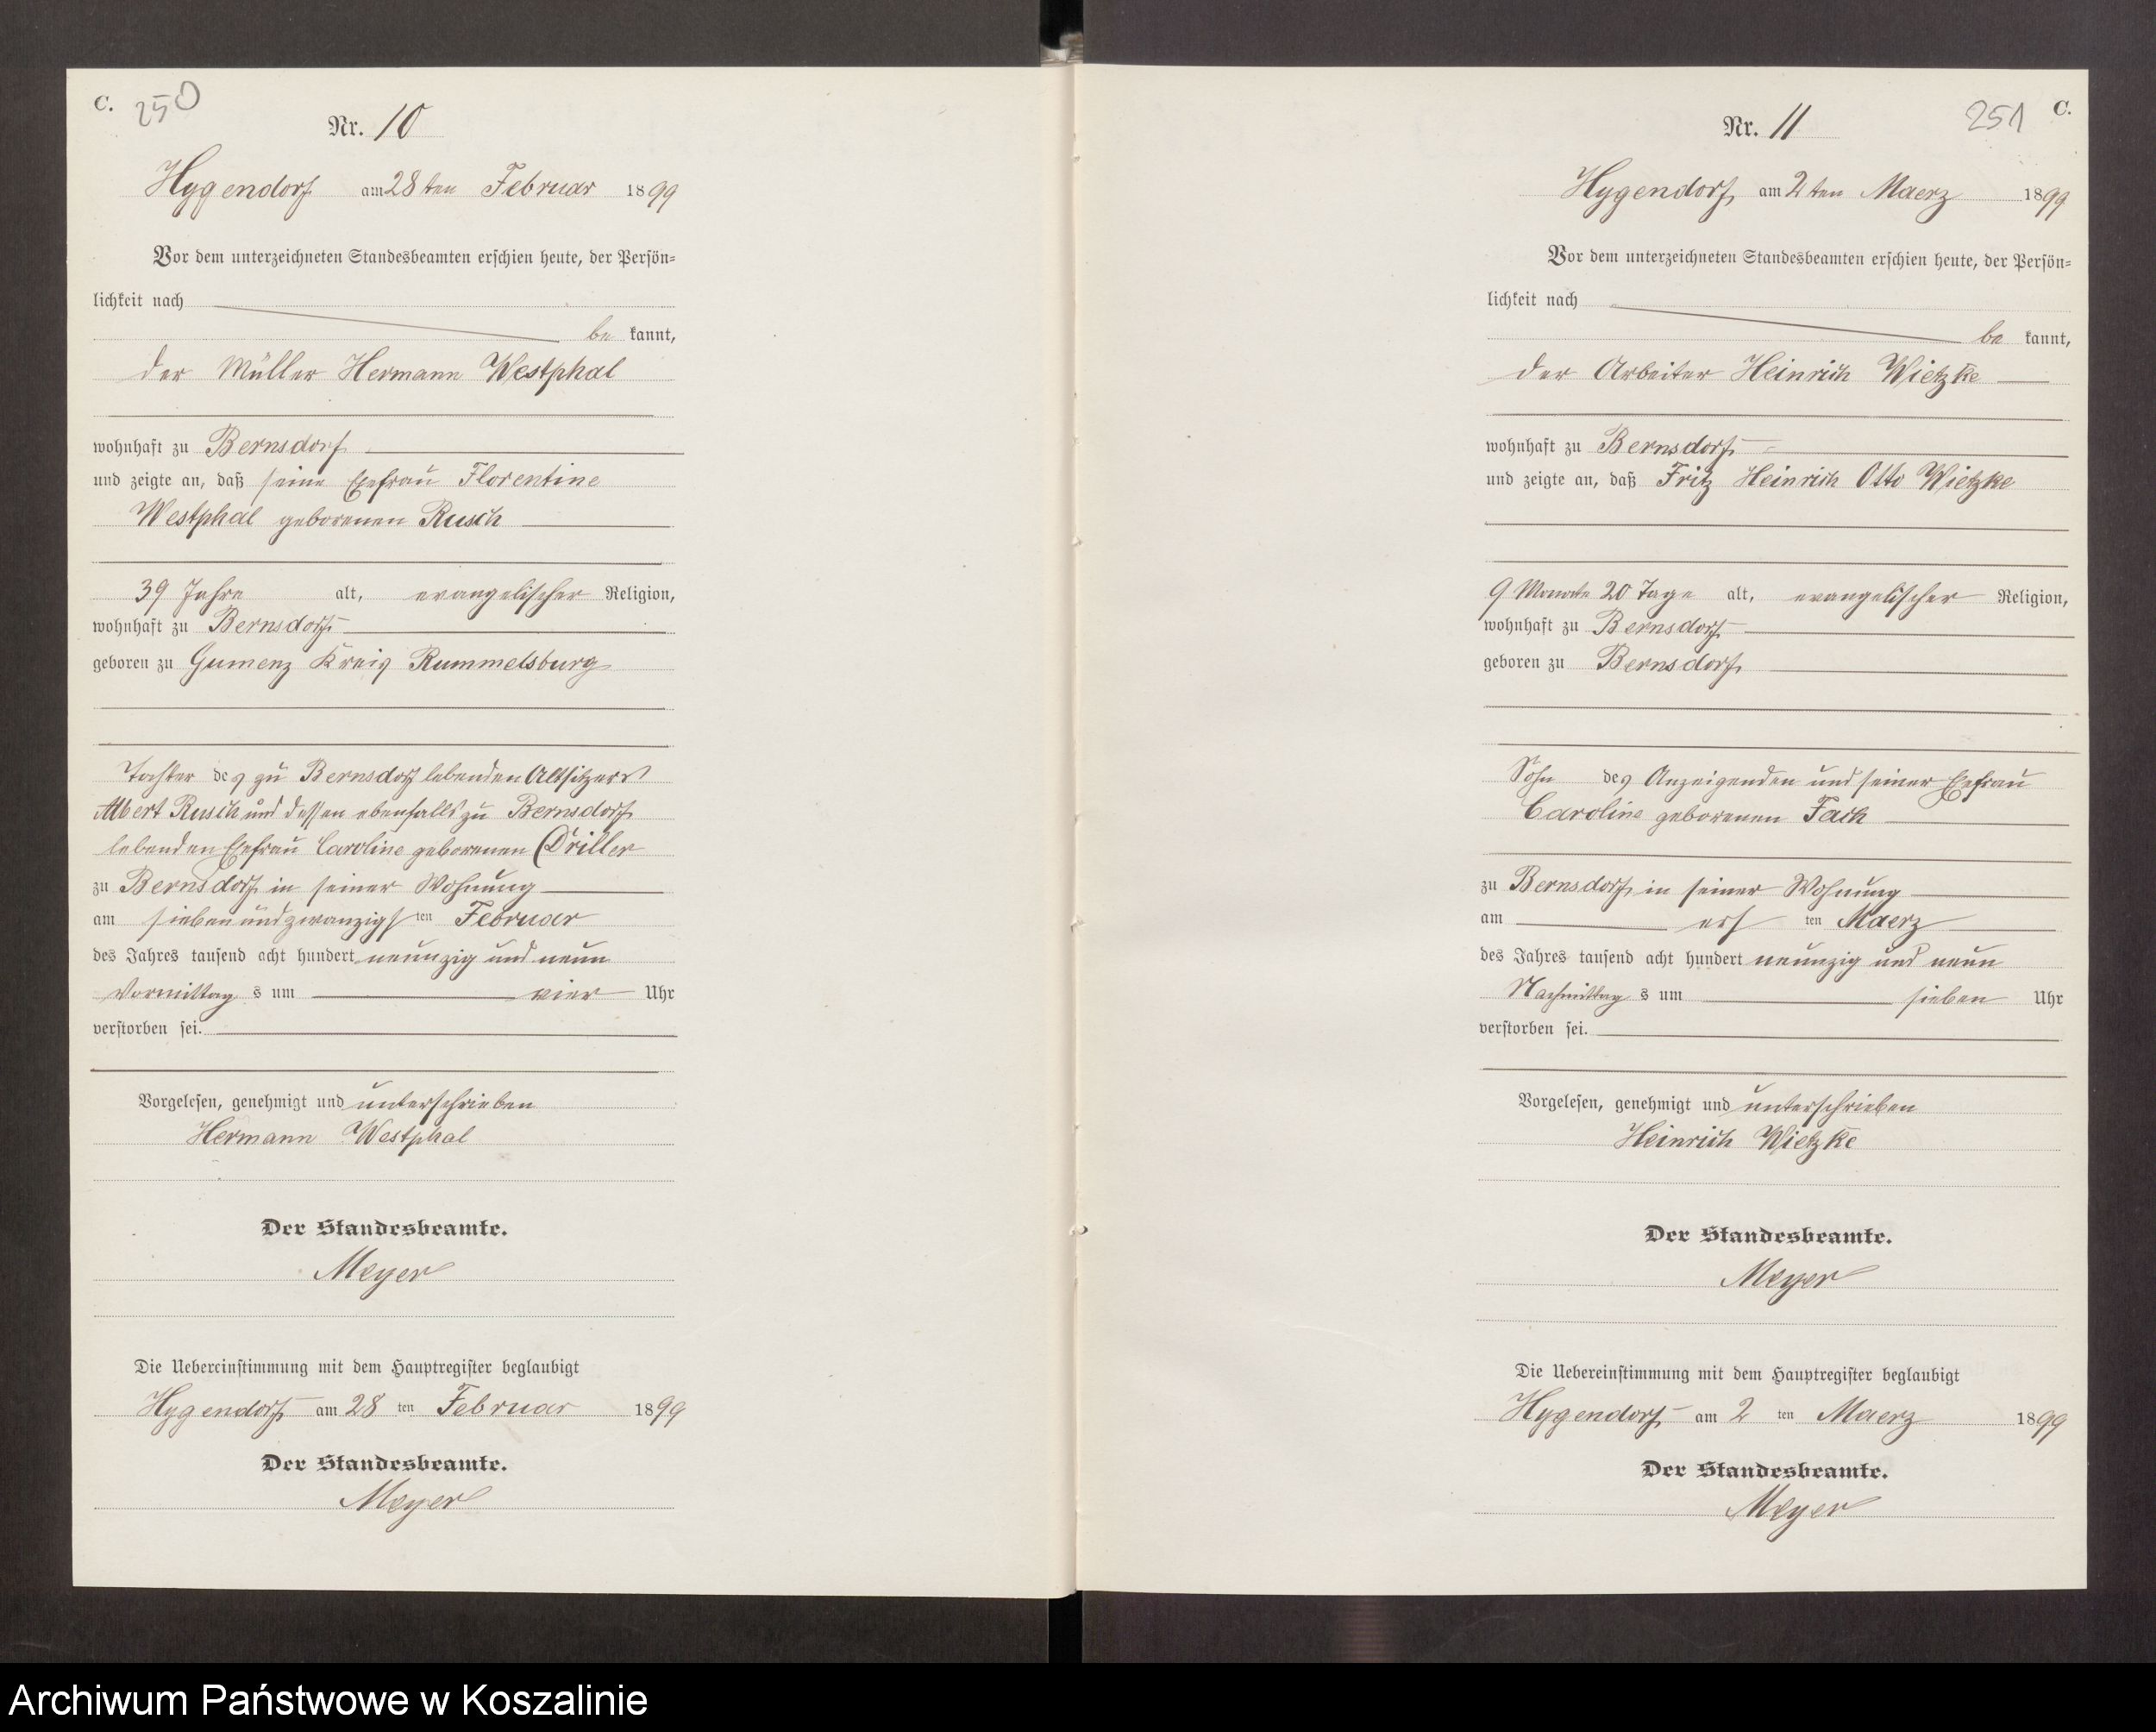 C. 250
Nr. 10
Hygendorf am 28ten Februar 1899
Vor dem unterzeichneten Standesbeamten erschien heute, der Persön-
lichkeit nach
be kannt,
der Müller Hermann Westphal
wohnhaft zu Bernsdorf
und zeigte an, daß seine Ehefrau Florentine
Westphal geborenen Rusch
39 Jahre alt, evangelischer Religion,
wohnhaft zu Bernsdorf
geboren zu Gumenz Kreis Rummelsburg
Tochter des zu Bernsdorf lebenden Altsitzers
Albert Rusch und dessen ebenfalls zu Bernsdorf
lebenden Ehefrau Caroline geborenen Driller
zu Bernsdorf in seiner Wohnung
am siebenundzwanzigsten Februar
des Jahres tausend acht hundert neunzig und neun
Vormittag s um vier Uhr
verstorben sei.
Vorgelesen, genehmigt und unterschrieben
Hermann Westphal
Der Standesbeamte.
Meyer
Die Uebereinstimmung mit dem Hauptregister beglaubigt
Hygendorf am 28 ten Februar 1899
Der Standesbeamte.
Meyer
251 C.
Nr. 11
Hygendorf am 2ten Maerz 1899
Vor dem unterzeichneten Standesbeamten erschien heute, der Persön-
lichkeit nach
be kannt,
der Arbeiter Heinrich Wietzke
wohnhaft zu Bernsdorf
und zeigte an, daß Fritz Heinrich Otto Wietzke
9 Monate 20 Tage alt, evangelischer Religion,
wohnhaft zu Bernsdorf
geboren zu Bernsdorf
Sohn des Anzeigenden und seiner Ehefrau
Caroline geborenen Fach
zu Bernsdorf in seiner Wohnung
am ersten Maerz
des Jahres tausend acht hundert neunzig und neun
Nachmittag s um sieben Uhr
verstorben sei.
Vorgelesen, genehmigt und unterschrieben
Heinrich Wietzke
Der Standesbeamte.
Meyer
Die Uebereinstimmung mit dem Hauptregister beglaubigt
Hygendorf am 2 ten Maerz 1899
Der Standesbeamte.
Meyer
Archiwum Państwowe w Koszalinie